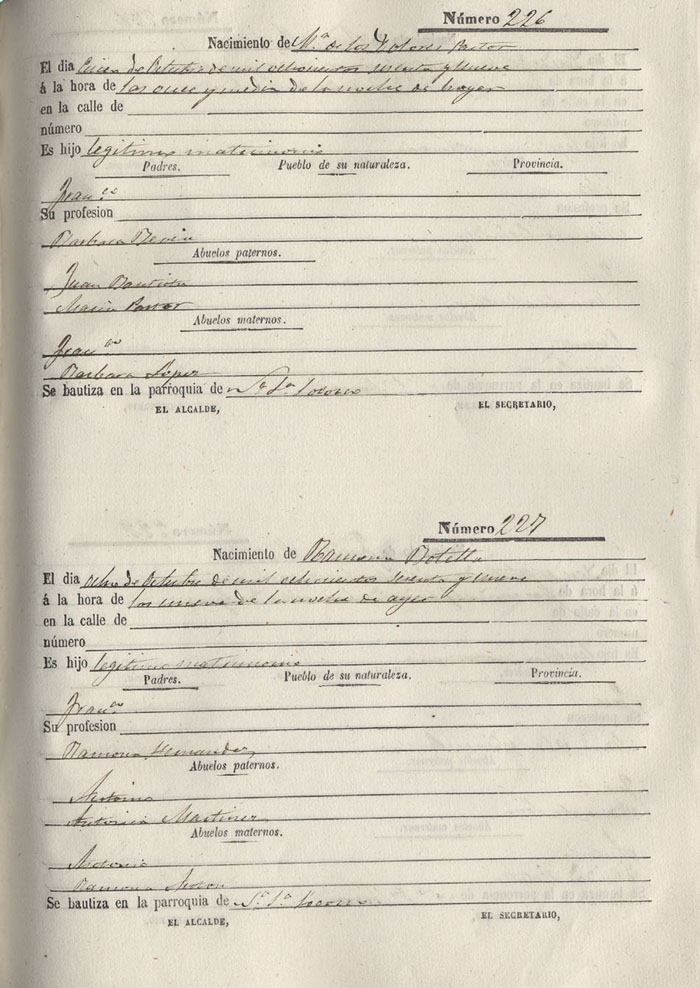 Número 226
Nacimiento de M.ª de los Dolores Pastor
El dia Cinco de Octubre de mil ochocientos sesenta y nueve
á la hora de las once y media de la noche de
en la calle de
número
Es hijo legitimo matrimonio
Padres. Pueblo de su naturaleza. Provincia.
Fran.co
Su profesion
Barbara
Abuelos paternos.
Juan Bautista
Maria Pastor
Abuelos maternos.
Fran.co
Barbara Lopez
Se bautiza en la parroquia de
EL ALCALDE, EL SECRETARIO,
Número 227
Nacimiento de Ramona Botella
El dia ocho de Octubre de mil ochocientos sesenta y nueve
á la hora de las nueve de la noche de ayer
en la calle de
número
Es hijo legitimo matrimonio
Padres. Pueblo de su naturaleza. Provincia.
Fran.co
Su profesion
Ramona Hernandez
Abuelos paternos.
Antonio
Antonia Martinez
Abuelos maternos.
Antonio
Ramona
Se bautiza en la parroquia de
EL ALCALDE, EL SECRETARIO,